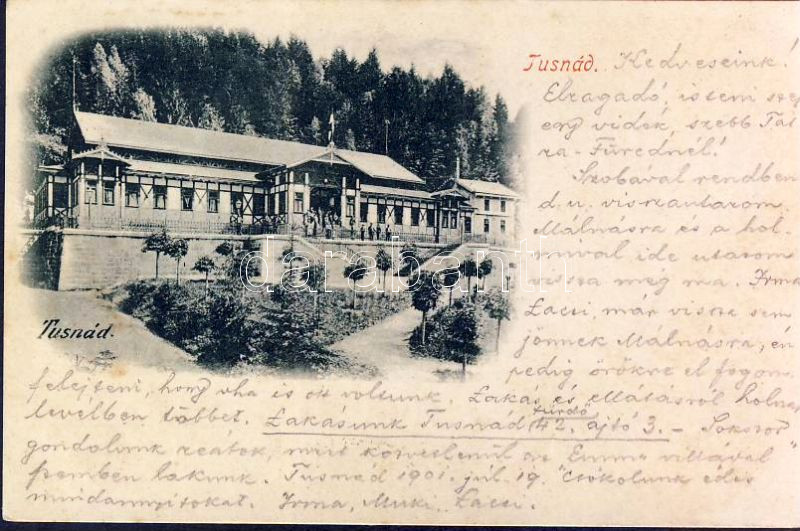 Tusnád. Kedveseink!
Elragadó, isteni szép
egy vidék, szebb Tát
ra-Furednél!
Szobával rendben
d. u. visszautazom
Málnásra és a hol
mival ide utazom
vissza még ma. Irma
Laczi, már vissza sem
jönnek Málnásra, én
pedig örökre el fogom
felejteni, hogy vha is ott voltunk. Lakás és ellátásról holnap
levélben többet. Lakásunk Tusnád fürdő 42. ajtó 3. - Sokszor
gondolunk reátok, mert közvetlenül az "Emma" villával
szemben lakunk. Tusnád 1901. júl. 19. Csókolunk édes
mindannyitokat. Irma, Muki, Laczi.
Tusnád.
darabanth